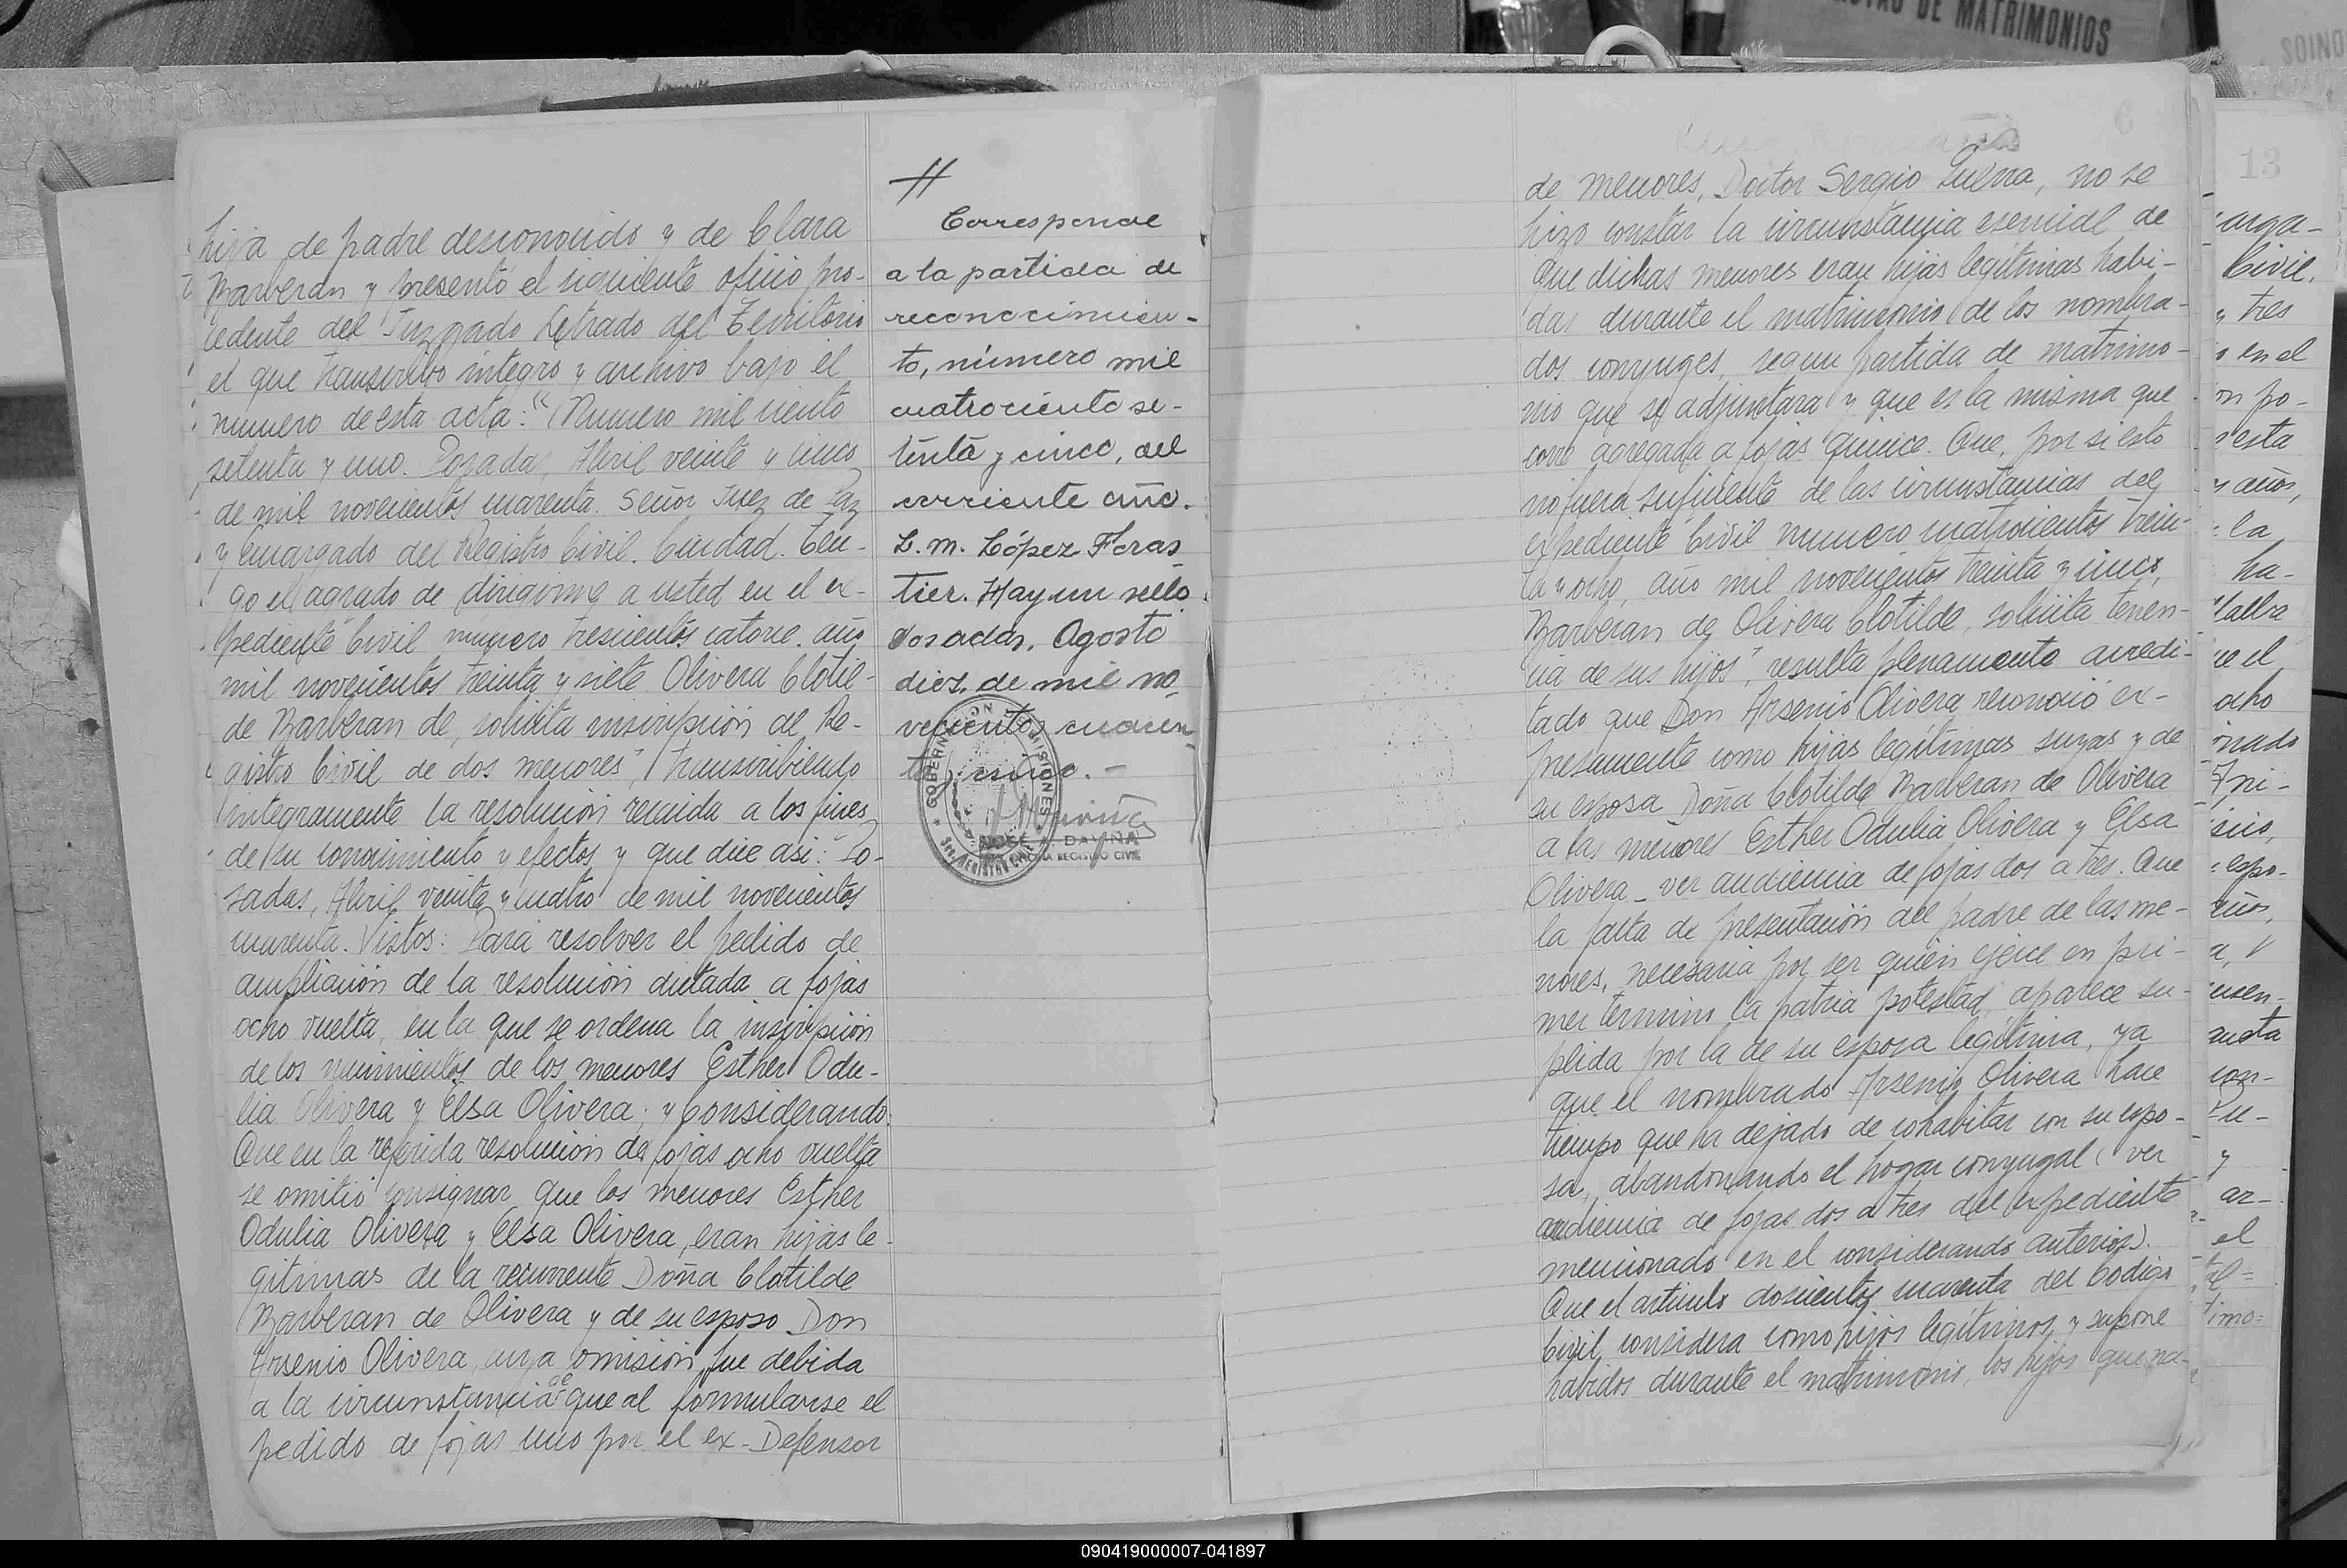 hija de padre desconocido y de Clara
Barberan y presentó el siguiente oficio pro-
cedente del Juzgado Letrado del Territorio
el que transcribo integro y archivo bajo el
numero de esta acta: "Numero mil ciento
setenta y uno. Posadas, Abril veinte y cinco
de mil novecientos cuarenta. Señor Juez de Paz
y Encargado del Registro Civil. Ciudad. Ten-
go el agrado de dirigirme a usted en el ex-
pediente Civil número trescientos catorce, año
mil novecientos treinta y siete Olivera Clotil-
de Barberan de, solicita inscripción de Re-
gistro Civil de dos menores", transcribiendo
integramente la resolución recaida a los fines
de su conocimiento y efectos y que dice asi: Po-
sadas, Abril veinte y cuatro de mil novecientos
cuarenta. Vistos: Para resolver el pedido de
ampliación de la resolución dictada a fojas
ocho vuelta, en la que se ordena la inscripción
de los nacimientos de los menores Esther Odu-
lia Olivera y Elsa Olivera; y Considerando:
Que en la referida resolución de fojas ocho vuelta
se omitió consignar que los menores Esther
Odulia Olivera y Elsa Olivera, eran hijas le-
gitimas de la recurrente Doña Clotilde
Barberan de Olivera y de su esposo Don
Arsenio Olivera, cuya omisión fue debida
a la circunstancia de que al formularse el
pedido de fojas uno por el ex-Defensor
Corresponde
a la partida de
reconocimien-
to, número mil
cuatrociento se-
tenta y cinco, del
corriente año.
L. M. López Foras
tier. Hay un sello
Posadas, Agosto
diez, de mil no
vecientos cuaren
ta y cinco.-
GOBERNACION MISIONES
REGISTRO CIVIL
DAVIÑA
REGISTRO CIVIL
de menores, Doctor Sergio Guerra, no se
hizo constar la circunstancia esencial de
que dichas menores eran hijas legítimas habi-
das durante el matrimonio de los nombra-
dos conyuges, segun partida de matrimo-
nio que se adjuntara y que es la misma que
corre agregada a fojas quince. Que, por si esto
no fuera suficiente de las circunstancias del
expediente Civil numero cuatrocientos trein-
ta y ocho, año mil novecientos treinta y cinco,
Barberan de Olivera Clotilde, solicita tenen-
cia de sus hijos", resulta plenamente acredi-
tado que Don Arsenio Olivera reconoció ex-
presamente como hijas legítimas suyas y de
su esposa Doña Clotilde Barberan de Olivera
a las menores Esther Odulia Olivera y Elsa
Olivera - ver audiencia de fojas dos a tres. Que
la falta de presentación del padre de las me-
nores, necesaria por ser quien ejerce en pri-
mer termino la patria potestad, aparece su-
plida por la de su esposa legítima, ya
que el nombrado Arsenio Olivera hace
tiempo que ha dejado de cohabitar con su espo-
sa, abandonando el hogar conyugal (ver
audiencia de fojas dos a tres del expediente
mencionado en el considerando anterior).
Que el articulo doscientos cuarenta del Codigo
Civil considera como hijos legítimos y supone
habidos durante el matrimonio, los hijos que na-
13
Civil.
y tres
en el
esta
y años,
la
ha-
el
ocho
espo-
con-
y
ar-
el
DE MATRIMONIOS
090419000007-041897